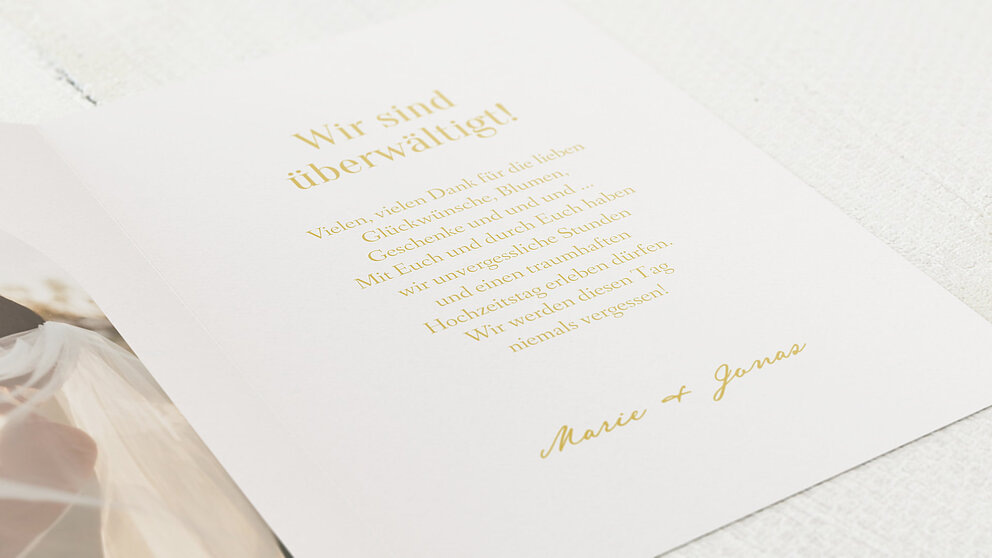 Wir sind
überwältigt!
Vielen, vielen Dank für die lieben
Glückwünsche, Blumen,
Geschenke und und und ...
Mit Euch und durch Euch haben
wir unvergessliche Stunden
und einen traumhaften
Hochzeitstag erleben dürfen.
Wir werden diesen Tag
niemals vergessen!
Marie + Jonas